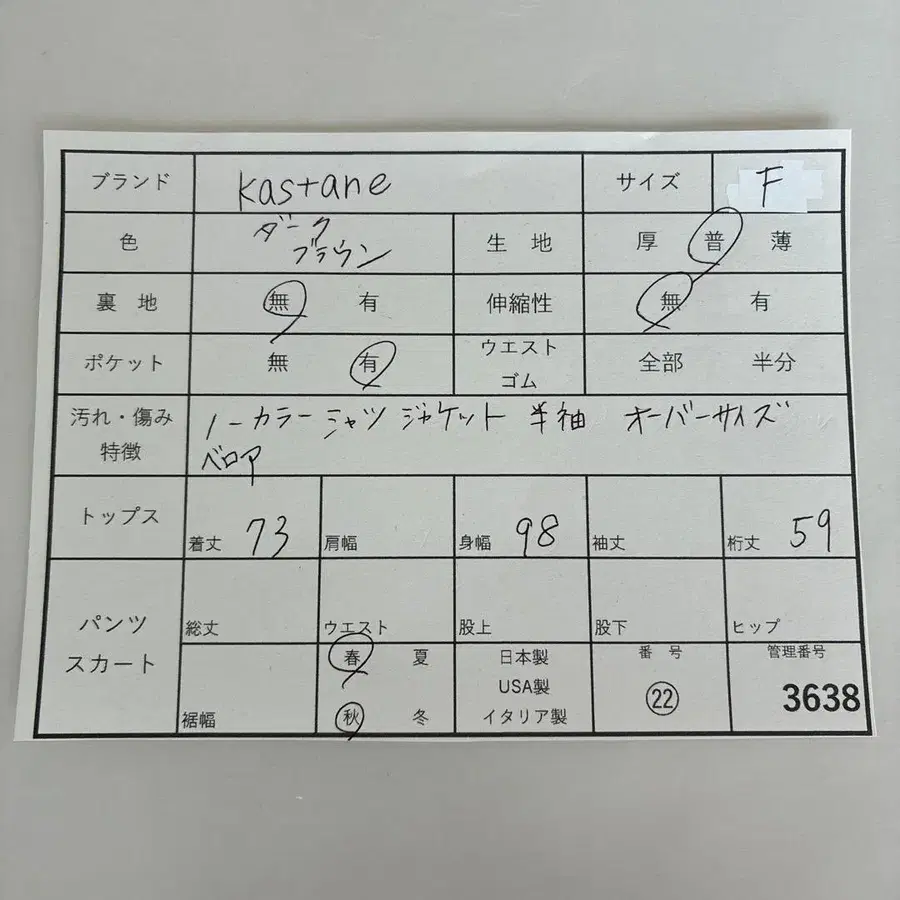 ブランド kastane サイズ F
色 ダーク ブラウン 生地 厚 普 薄
裏地 無 有 伸縮性 無 有
ポケット 無 有 ウエスト ゴム 全部 半分
汚れ・傷み 特徴 ノーカラー シャツ ジャケット 半袖 オーバーサイズ
ベロア
トップス 着丈 73 肩幅 身幅 98 袖丈 裄丈 59
パンツ スカート 総丈 ウエスト 股上 股下 ヒップ
裾幅 春 夏 秋 冬 日本製 USA製 イタリア製 番号 ㉒ 管理番号 3638